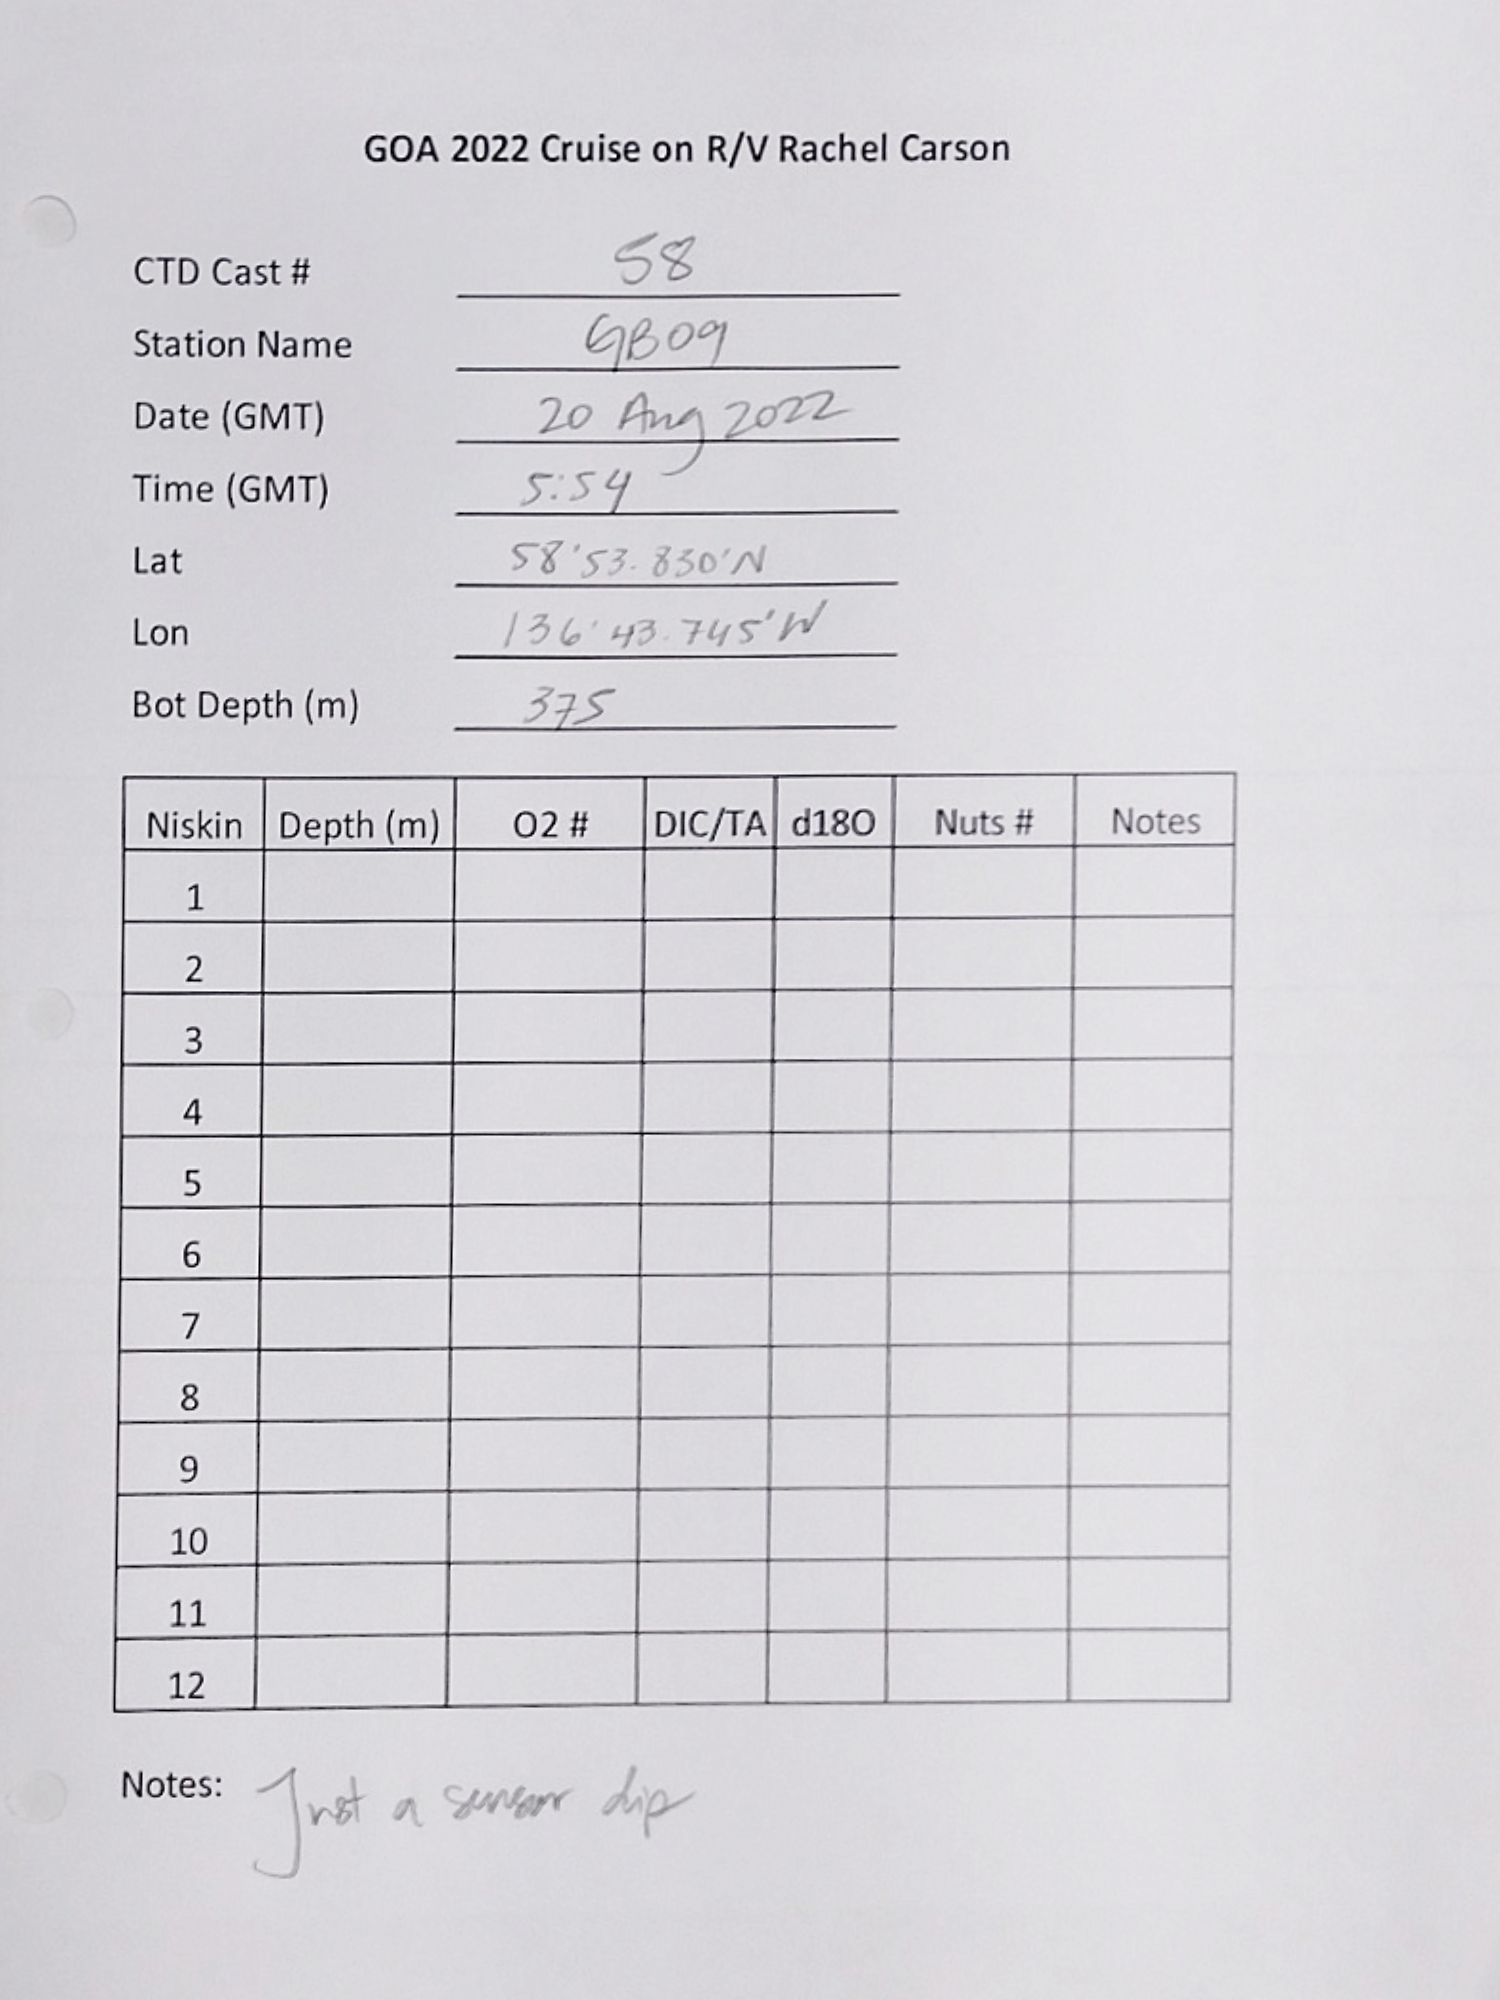 GOA 2022 Cruise on R/V Rachel Carson
CTD Cast # 58
Station Name GB09
Date (GMT) 20 Aug 2022
Time (GMT) 5:54
Lat 58'53.830'N
Lon 136'43.745'W
Bot Depth (m) 375
Niskin Depth (m) O2 # DIC/TA d18O Nuts # Notes
1
2
3
4
5
6
7
8
9
10
11
12
Notes: Just a sensor dip